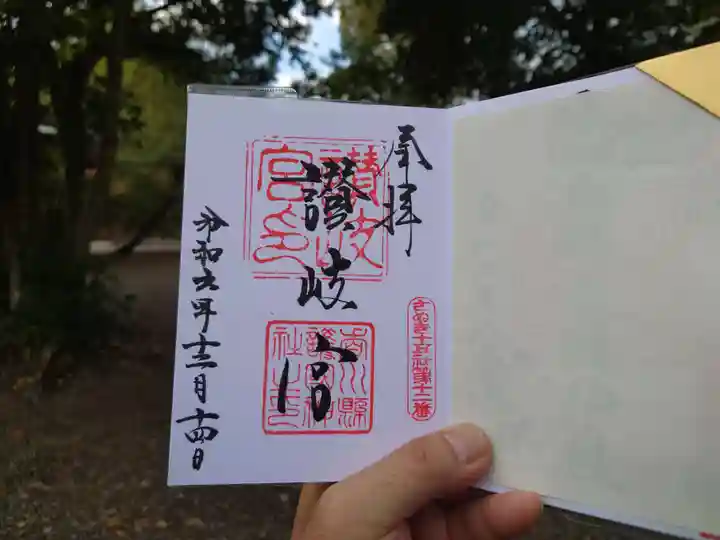 奉拝
讃岐宮
讃岐宮印
香川縣護國神社之印
さぬき十五社第十二番
令和六年十二月十四日